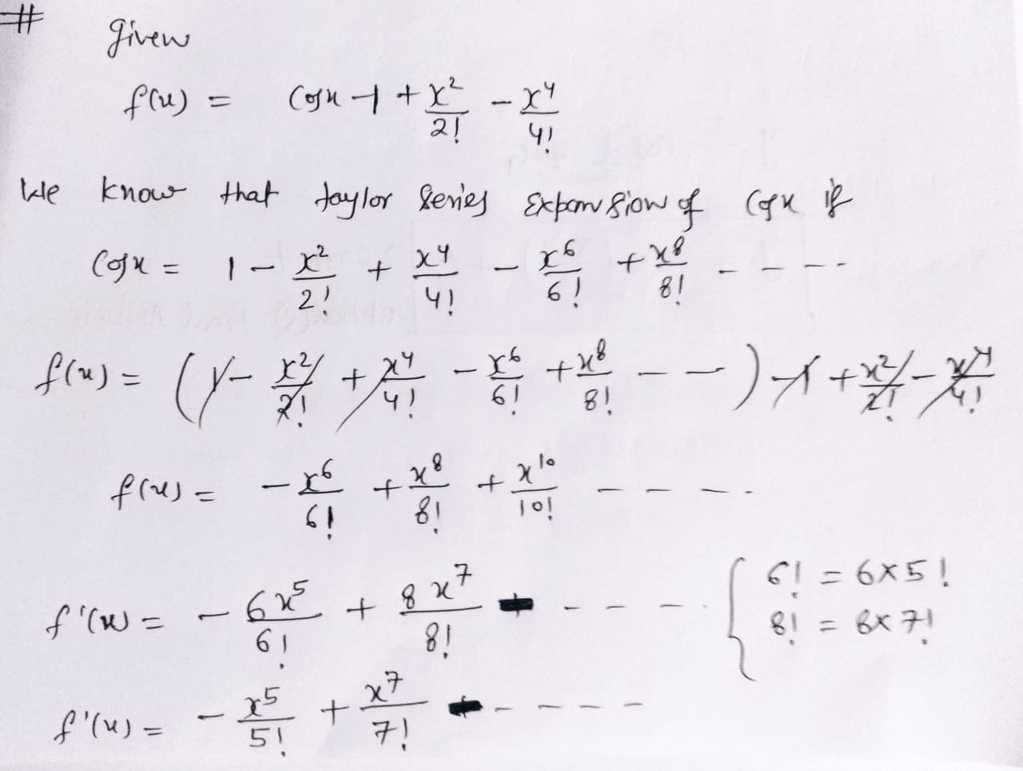 #
Given
f(x) = cosx - 1 + x²/2! - x⁴/4!
We know that taylor series expansion of cosx is
cosx = 1 - x²/2! + x⁴/4! - x⁶/6! + x⁸/8! - - - -
f(x) = (1 - x²/2! + x⁴/4! - x⁶/6! + x⁸/8! - - -) - 1 + x²/2! - x⁴/4!
f(x) = - x⁶/6! + x⁸/8! + x¹⁰/10! - - - -
f'(x) = - 6x⁵/6! + 8x⁷/8! - - - - { 6! = 6×5!
8! = 8×7!
f'(x) = - x⁵/5! + x⁷/7! - - - -